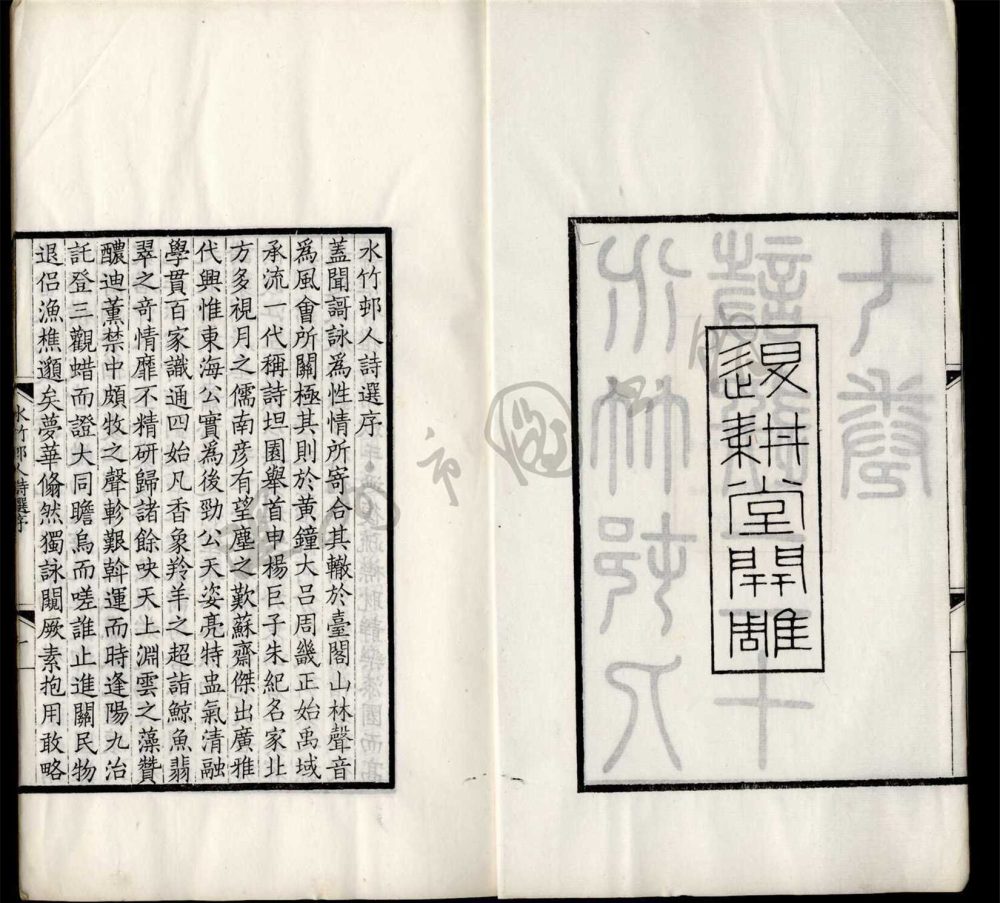 退耕堂開雕
水竹邨人詩選序
蓋聞謌詠為性情所寄合其轍於臺閣山林聲音
為風會所關極其則於黃鐘大呂周畿正始禹域
承流一代稱詩坦園舉首申楊巨子朱紀名家北
方多視月之儒南彥有望塵之歎蘇齋傑出廣雅
代興惟東海公實為後勁公天姿亮特盅氣清融
學貫百家識通四始凡香象羚羊之超詣鯨魚翡
翠之奇情靡不精研歸諸餘吷天上淵雲之藻贊
醲迪薰禁中頗牧之聲軫艱斡運而時逢陽九治
託登三觀蜡而證大同瞻烏而嗟誰止進關民物
退侶漁樵邈矣夢華翛然獨詠闚厥素抱用敢略
水竹邨人詩選序
一